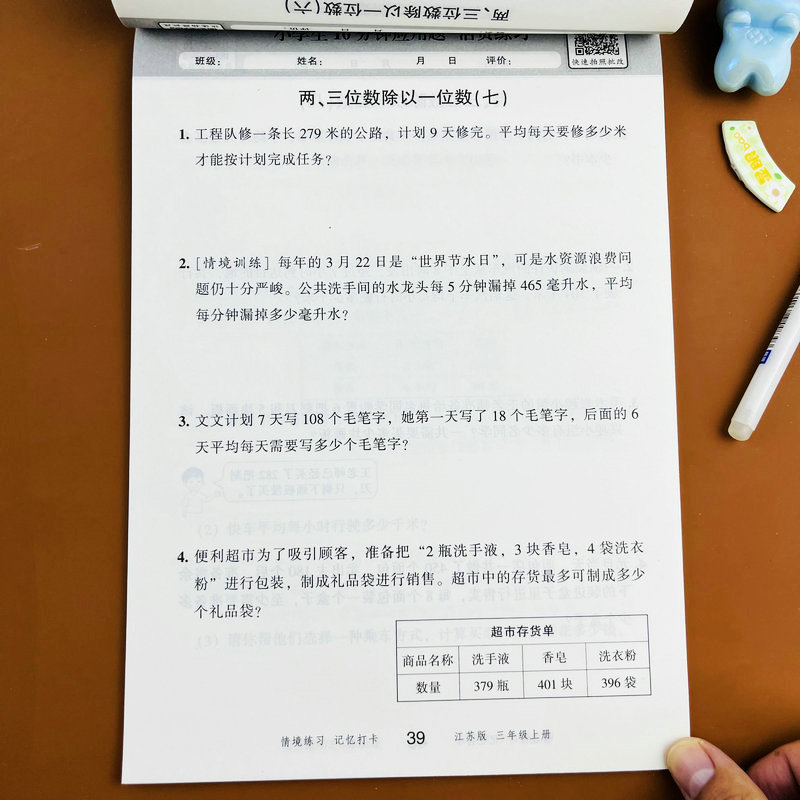 两、三位数除以一位数(六)
小学生10分钟应用题 活页练习
班级： 姓名： 月 日 评价：
快速拍照批改
两、三位数除以一位数(七)
1. 工程队修一条长 279 米的公路，计划 9 天修完。平均每天要修多少米
才能按计划完成任务？
2. [情境训练] 每年的 3 月 22 日是“世界节水日”，可是水资源浪费问
题仍十分严峻。公共洗手间的水龙头每 5 分钟漏掉 465 毫升水，平均
每分钟漏掉多少毫升水？
3. 文文计划 7 天写 108 个毛笔字，她第一天写了 18 个毛笔字，后面的 6
天平均每天需要写多少个毛笔字？
4. 便利超市为了吸引顾客，准备把“2 瓶洗手液，3 块香皂，4 袋洗衣
粉”进行包装，制成礼品袋进行销售。超市中的存货最多可制成多少
个礼品袋？
超市存货单
商品名称 洗手液 香皂 洗衣粉
数量 379 瓶 401 块 396 袋
情境练习 记忆打卡 39 江苏版 三年级上册